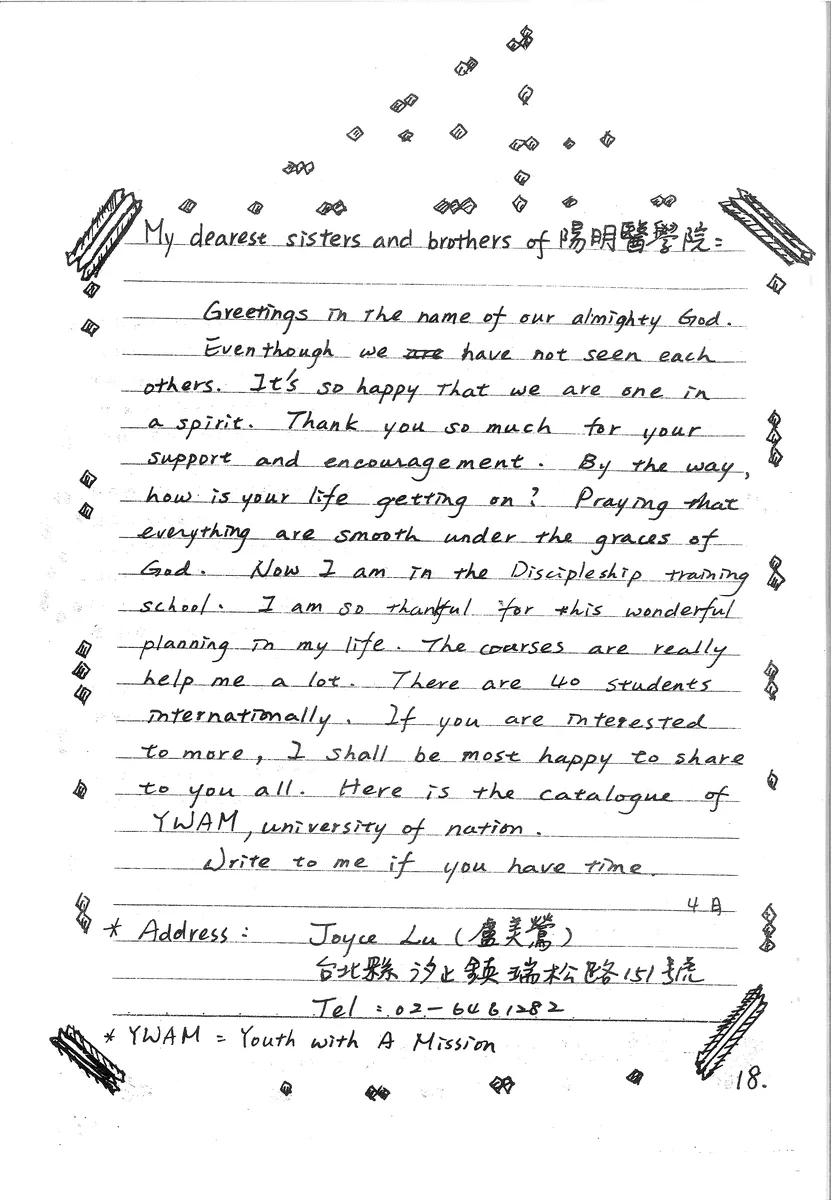 My dearest sisters and brothers of 陽明醫學院:
Greetings in the name of our almighty God.
Eventhough we are have not seen each
others. It's so happy that we are one in
a spirit. Thank you so much for your
support and encouragement. By the way,
how is your life getting on? Praying that
everything are smooth under the graces of
God. Now I am in the Discipleship training
school. I am so thankful for this wonderful
planning in my life. The courses are really
help me a lot. There are 40 students
internationally. If you are interested
to more, I shall be most happy to share
to you all. Here is the catalogue of
YWAM, university of nation.
Write to me if you have time.
4月
* Address: Joyce Lu (盧美鶯)
台北縣汐止鎮瑞松路151號
Tel: 02-6461282
* YWAM = Youth with A Mission
18.